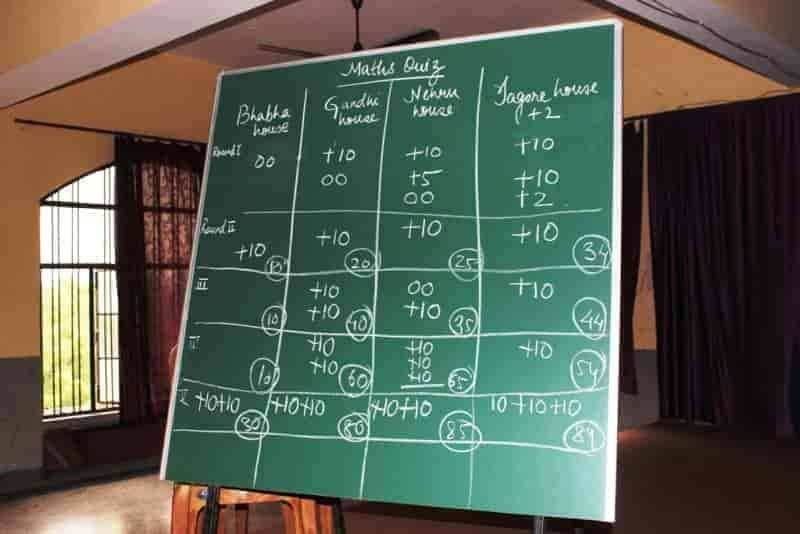 Maths Quiz
Bhabha house Gandhi house Nehru house Tagore house
+2
Round I 00 +10 +10 +10
00 +5 +10
00 +2
Round II +10 +10 +10 +10
10 20 25 34
III +10 00 +10
+10 +10
10 40 35 44
IV +10 +10 +10
+10 +10
+10
10 60 65 54
V +10+10 +10+10 +10+10 10+10+10
30 80 85 84